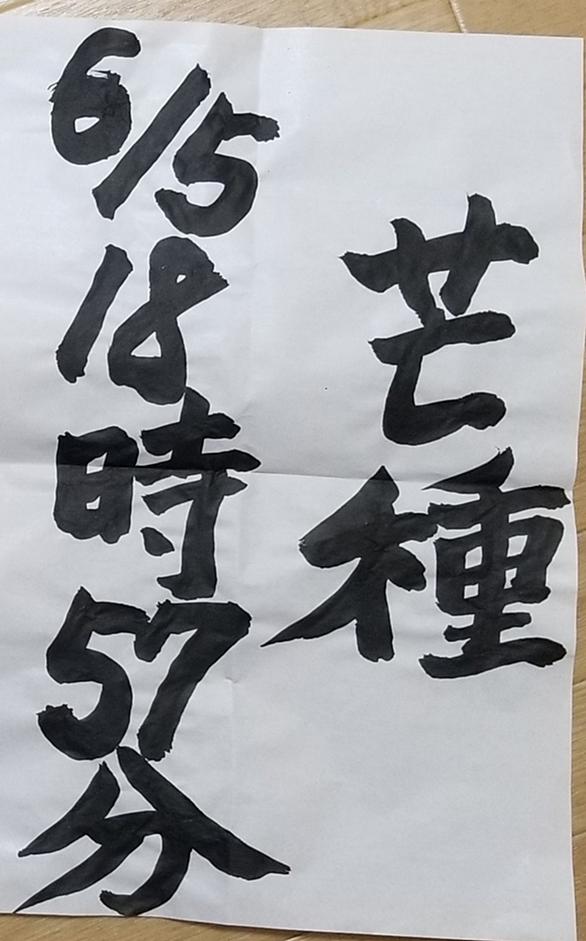 芒種
6/5
18
時
57
分